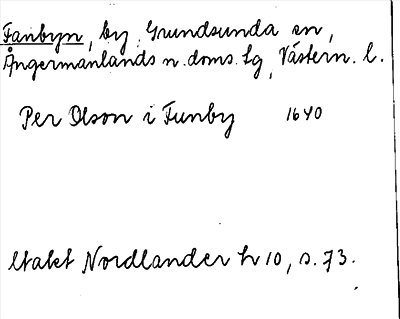 Fanbyn, by, Grundsunda sn,
Ångermanlands n. doms. lg, Västern. l.
Per Olson i Funby 1640
ltakt Nordlander hr 10, s. 73.